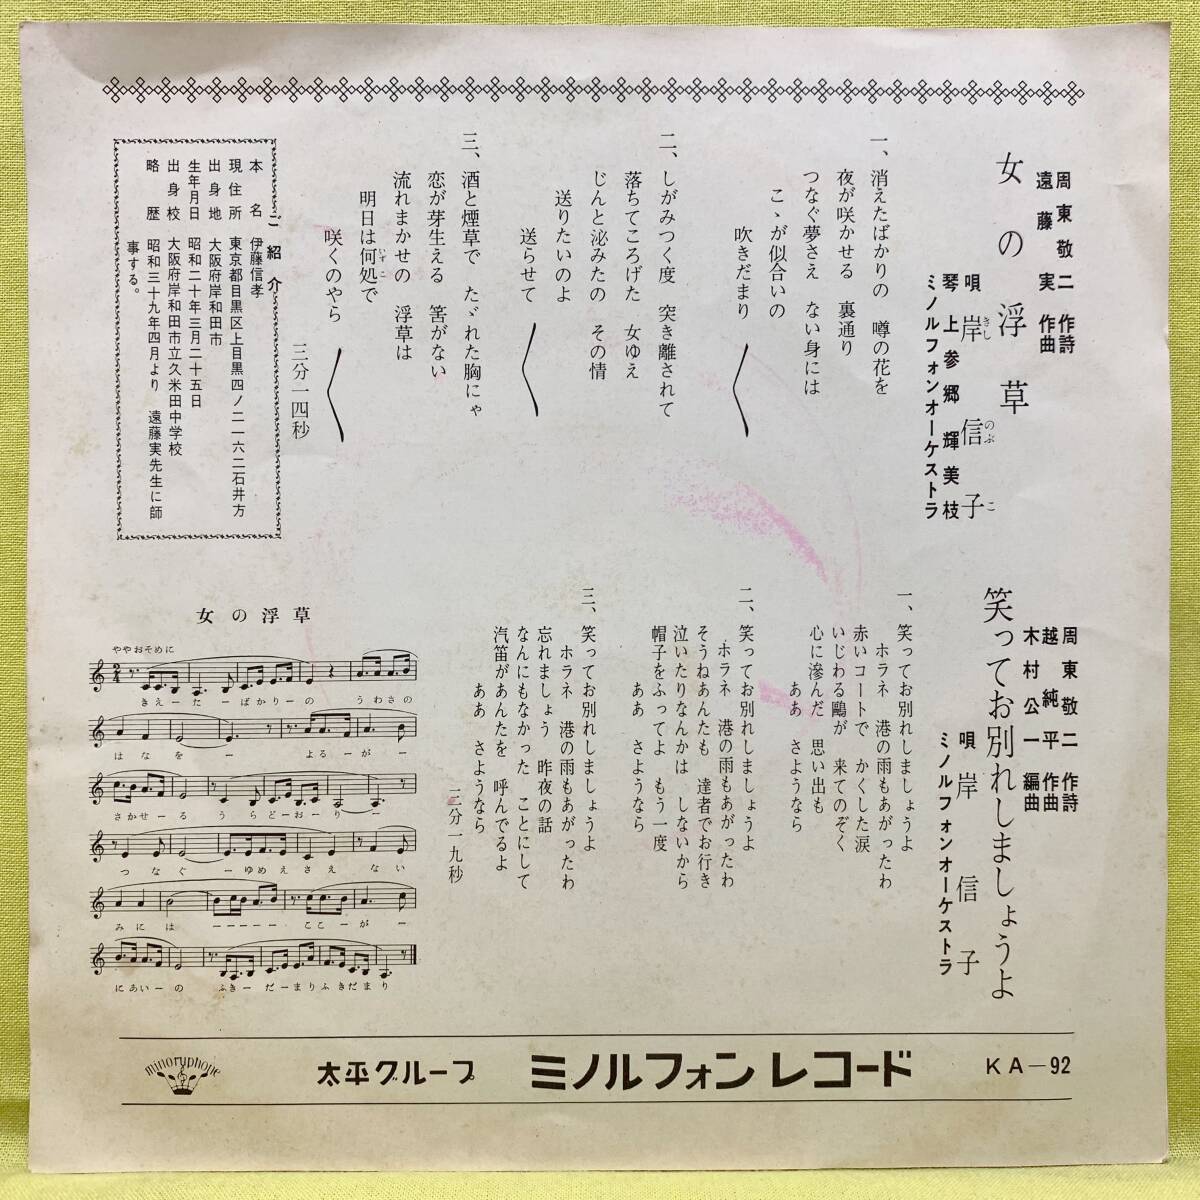 周東敬二 作詩
遠藤実 作曲
女の浮草
唄 岸信子
きし のぶ こ
琴上参郷輝美枝
ミノルフォンオーケストラ
一、消えたばかりの 噂の花を
夜が咲かせる 裏通り
つなぐ夢さえ ない身には
こゝが似合いの
吹きだまり
二、しがみつく度 突き離されて
落ちてころげた 女ゆえ
じんと泌みたの その情
送りたいのよ
送らせて
三、酒と煙草で たゞれた胸にゃ
恋が芽生える 筈がない
流れまかせの 浮草は
明日は何処で
いずこ
咲くのやら
三分一四秒
ご紹介
本名 伊藤信孝
現住所 東京都目黒区上目黒四ノ二一六二石井方
出身地 大阪府岸和田市
生年月日 昭和二十年三月二十五日
出身校 大阪府岸和田市立久米田中学校
略歴 昭和三十九年四月より 遠藤実先生に師
事する。
周東敬二 作詩
越純平 作曲
木村公一 編曲
笑ってお別れしましょうよ
唄 岸信子
ミノルフォンオーケストラ
一、笑ってお別れしましょうよ
ホラネ 港の雨もあがったわ
赤いコートで かくした涙
いじわる鷗が 来てのぞく
心に滲んだ 思い出も
ああ さようなら
二、笑ってお別れしましょうよ
ホラネ 港の雨もあがったわ
そうねあんたも 達者でお行き
泣いたりなんかは しないから
帽子をふってよ もう一度
ああ さようなら
三、笑ってお別れしましょうよ
ホラネ 港の雨もあがったわ
忘れましょう 昨夜の話
なんにもなかった ことにして
汽笛があんたを 呼んでるよ
ああ さようなら
三分一九秒
女の浮草
ややおそめに
きえーたーばかりーの うわさの
はなをー よるーがー
さかせーる うらどーおーりー
つなぐ ーゆめえさえ ない
みには ーーーーー ここーがー
にあいーの ふきーだーまりふきだまり
minoryphone
太平グループ ミノルフォンレコード KA-92